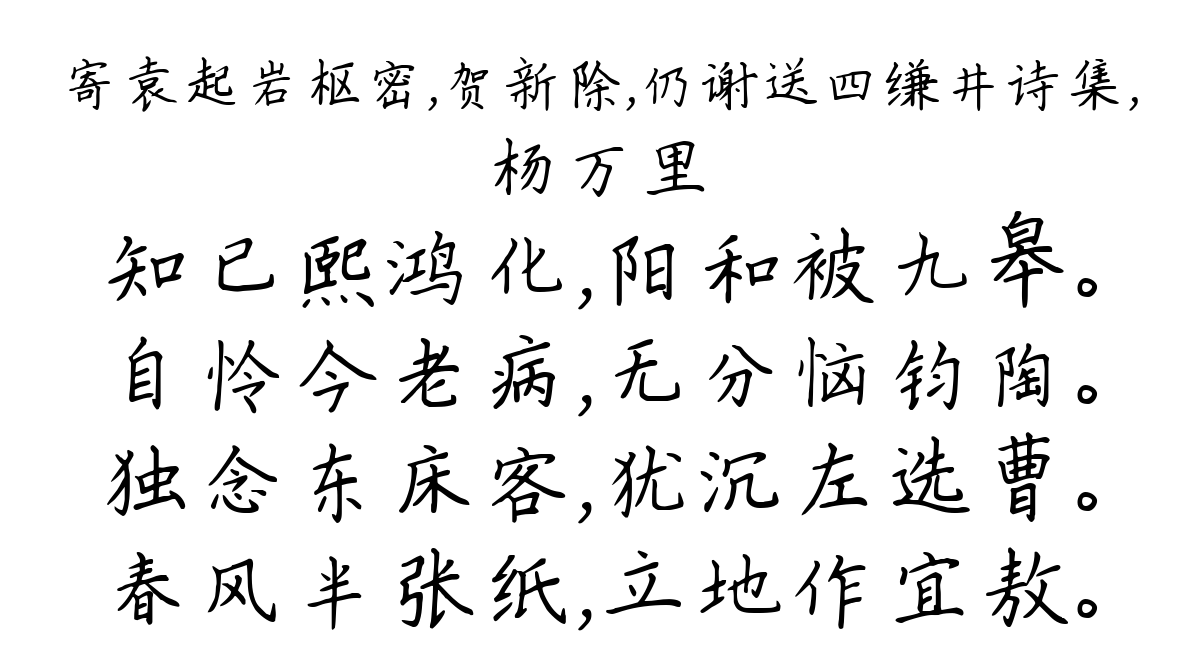 寄袁起岩枢密,贺新除,仍谢送四缣井诗集,
杨万里
知己熙鸿化,阳和被九皋。
自怜今老病,无分恼钧陶。
独念东床客,犹沉左选曹。
春风半张纸,立地作宜敖。